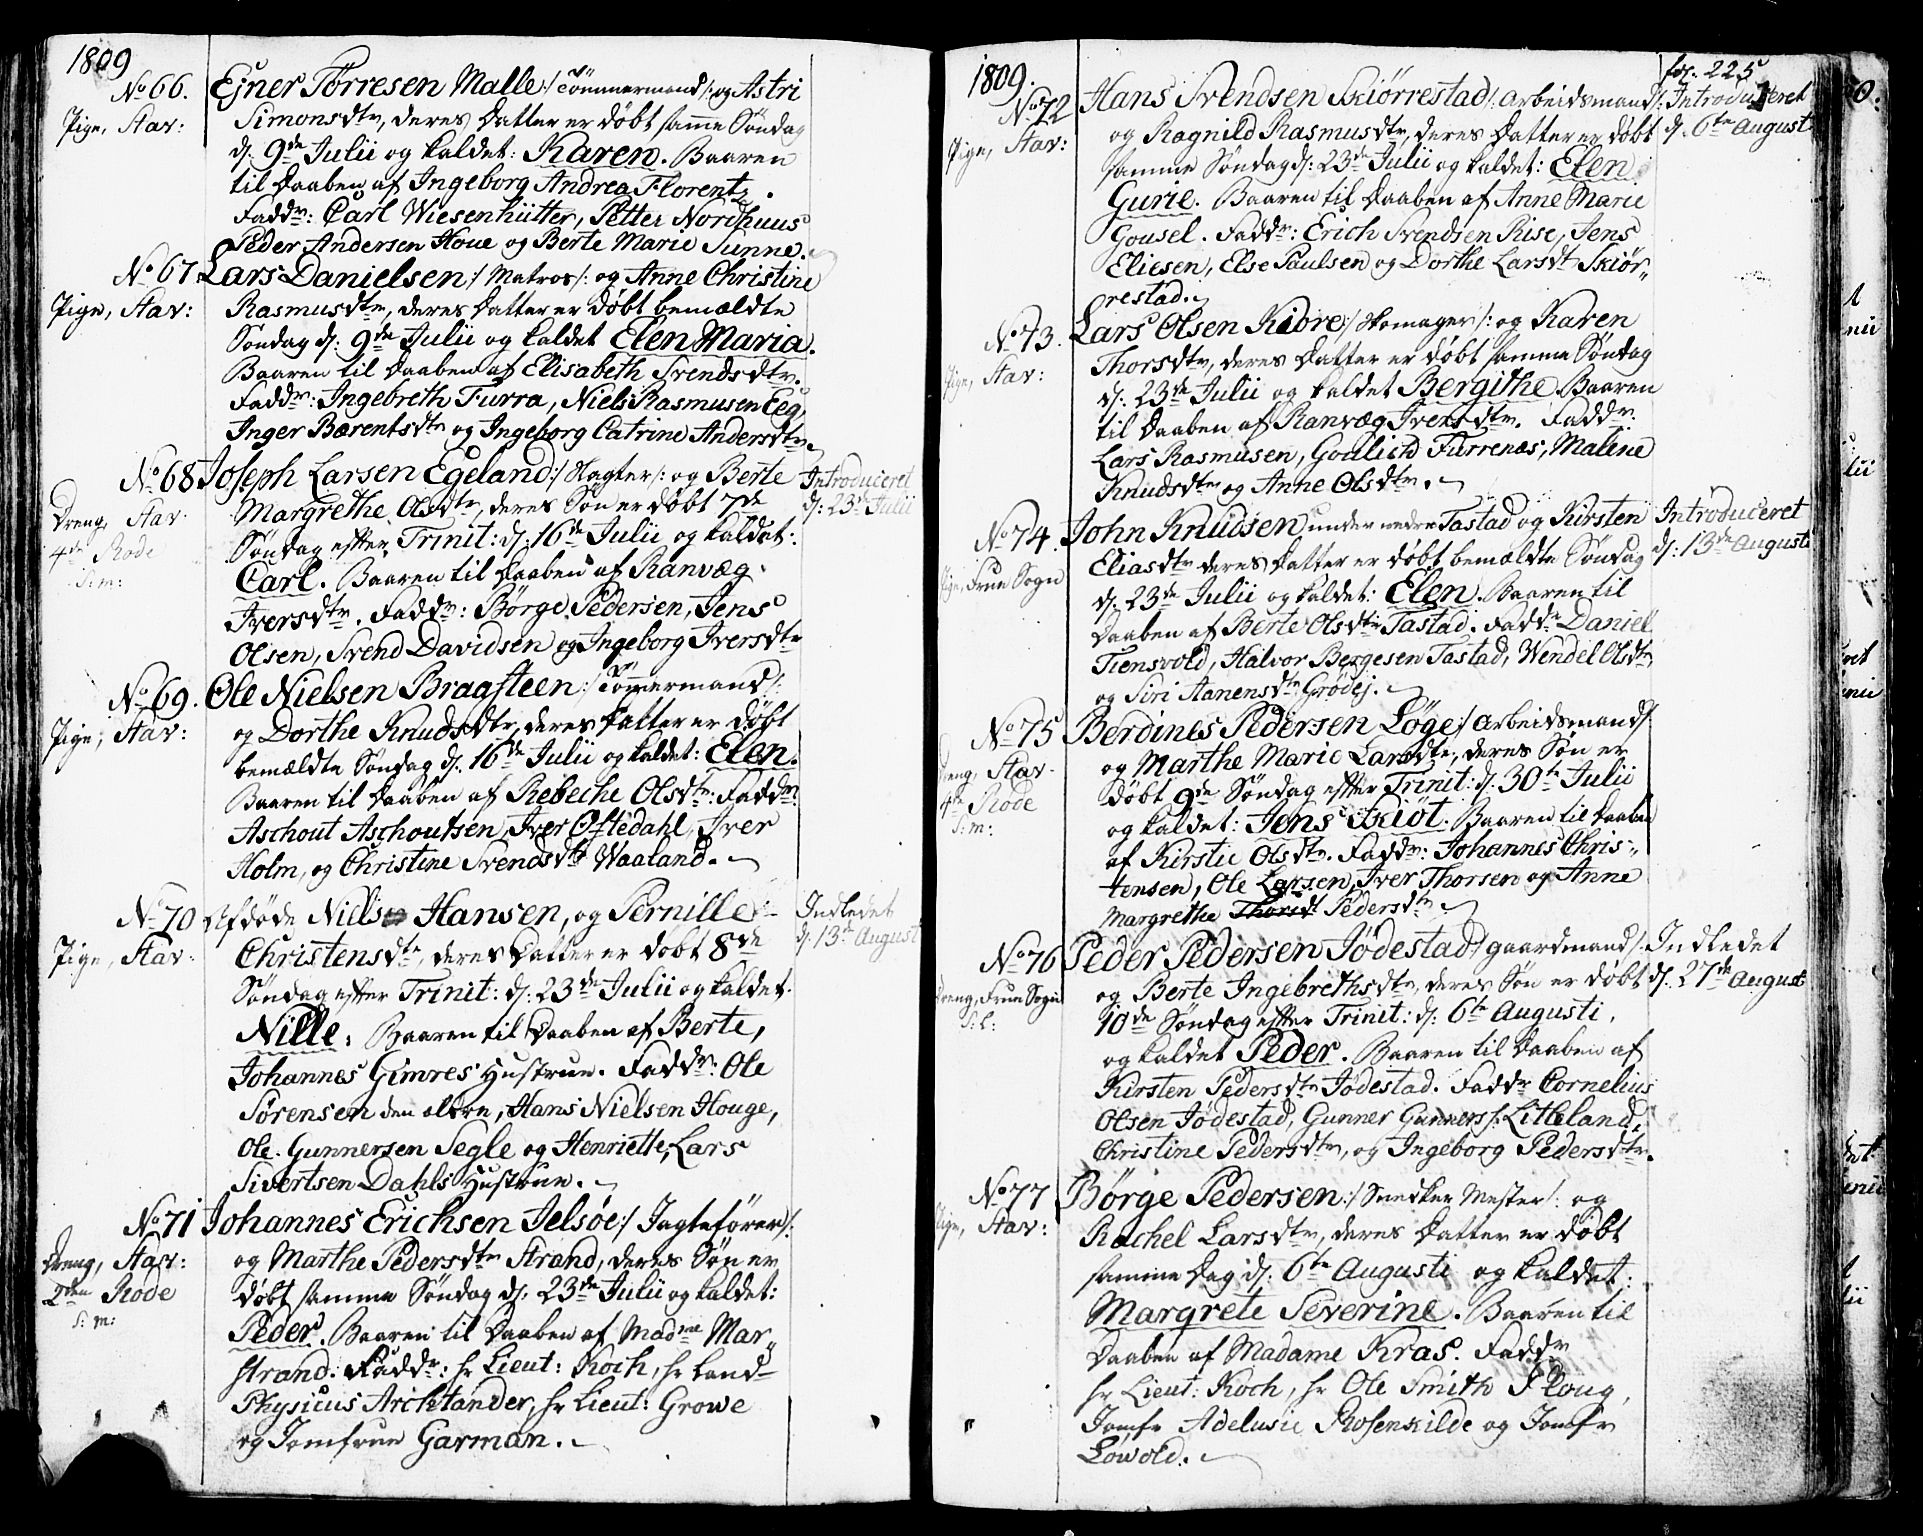 1809
No 66. Ejner Torresen Malle :/ Tömmermand /: og Astri
Pige, Stav: Simonsdtr, deres Datter er døbt samme Søndag
d: 9de Julii og kaldet: Karen. Baaren
til Daaben af Ingeborg Andrea Florentz.
Faddr: Carl Wiesenhütter, Petter Nordhuus
Peder Andersen Houe og Berte Marie Sunne.
No 67 Lars Danielsen :/ Matros /: og Anne Christine
Pige, Stav: Rasmusdtr, deres Datter er døbt bemældte
Søndag d: 9de Julii og kaldet Elen Maria.
Baaren til Daaben af Elisabeth Svendsdtr.
Faddr: Ingebreth Furra, Niels Rasmusen Eeg,
Inger Bærentsdtr og Ingeborg Catrine Andersdtr
No 68 Joseph Larsen Egeland :/ Slagter /: og Berte Introduceret
Dreng, Stav. Margrethe Olsdtr, deres Søn er døbt 7de d: 23de Julii
4de Rode Søndag efter Trinit: d: 16de Julii og kaldet:
S: m: Carl. Baaren til Daaben af Ranvæg
Iversdtr. Faddr: Börge Pedersen, Jens
Olsen, Svend Davidsen og Ingeborg Iversdtr
No 69. Ole Nielsen Bragsteen :/ Tömmermand /:
Pige, Stav: og Dorthe Knudsdtr, deres Datter er døbt
bemældte Søndag d: 16de Julii og kaldet: Elen.
Baaren til Daaben af Rebeche Olsdtr: Faddr
Aschout Aschoutsen, Iver Oftedahl, Iver
Holm, og Christine Svendsdtr Waaland.
No 70 Afdøde Niels Hansen, og Pernille Indledet
Pige, Stav: Christensdtr, deres Datter er døbt 8de d: 13de August
Søndag efter Trinit: d: 23de Julii og kaldet.
Nille: Baaren til Daaben af Berte,
Johannes Gimres Hustrue. Faddr: Ole
Sörensen den eldre, Hans Nielsen Houge,
Ole Gunnersen Segle og Henriette, Lars
Sivertsen Dahls Hustrue.
No 71 Johannes Erichsen Jelsöe :/ Jagtefører /:
Dreng, Stav: og Marthe Pedersdtr Strand, deres Søn er
2den Rode døbt samme Søndag d: 23de Julii og kaldet:
S: m: Peder. Baaren til Daaben af Madme Mar„
strand. Faddr: hr Lieut: Koch, hr Land-
Physicus Archtander, hr Lieut: Growe
og Jomfrue Garman.
fol. 225
1809.
No 72 Hans Svendsen Skiörrestad /: Arbeidsmand /: Introduceret
Pige, Stav: og Ragnild Rasmusdtr, deres Datter er døbt d: 6te August
samme Søndag d: 23de Julii og kaldet: Elen
Gurie. Baaren til Daaben af Anne Marie
Gousel. Faddr: Erich Svendsen Rise, Jens
Eliesen, Else Paulsen og Dorthe Larsdt Skiör„
restad.
No 73. Lars Olsen Kidre :/ Skomager /: og Karen
Pige, Stav: Thorsdtr, deres Datter er døbt samme Søndag
d: 23de Julii og kaldet Bergithe Baaren
til Daaben af Ranvæg Iversdtr. Faddr:
Lars Rasmusen, Goulich Furrenæs, Maline
Knudsdtr og Anne Olsdtr.
No 74. John Knudsen under nedre Tastad og Kirsten Introduceret
Pige, Frue Sogn Eliasdtr deres Datter er døbt bemældte Søndag d: 13de Augusti
d: 23de Julii og kaldet: Elen. Baaren til
Daaben af Berte Olsdtr Tastad. Faddr Daniel
Tiensvold, Halvor Bergesen Tastad, Wendel Olsdtr
og Siri Aanensdtr Grödej.
No 75 Berdines Pedersen Löge :/ Arbeidsmand /:
Dreng, Stav. og Marthe Marie Larsdtr, deres Søn er
4de Rode døbt 9de Søndag efter Trinit: d: 30te Julii
S: m: og kaldet: Jens Skiöt. Baaren til Daaben
af Kirstie Olsdtr. Faddr: Johannes Chris„
tensen, Ole Larsen, Iver Thorsen og Anne
Margrethe Thorsdt Pedersdtr
No 76 Peder Pedersen Jödestad :/ gaardmand /: Indledet
Dreng, Frue Sogn og Berte Ingebrethsdtr, deres Søn er døbt d: 27de August
S: l: 10de Søndag efter Trinit: d: 6te Augusti,
og kaldet Peder. Baaren til Daaben af
Kirsten Pedersdtr Jödestad. Faddr Cornelius
Olsen Jödestad, Gunner Gunners s. Litleland,
Christine Pedersdtr, og Ingeborg Pedersdtr.
No 77 Börge Pedersen :/ Snedker Mester /: og
Pige, Stav: Rachel Larsdtr, deres Datter er døbt
samme Dag d: 6te Augusti og kaldet:
Margrete Severine. Baaren til
Daaben af Madame Kras. Faddr
hr Lieut: Koch, hr Ole Smith Ploug,
Jomfr Adelusie Rosenkilde og Jomfr
Löwold.